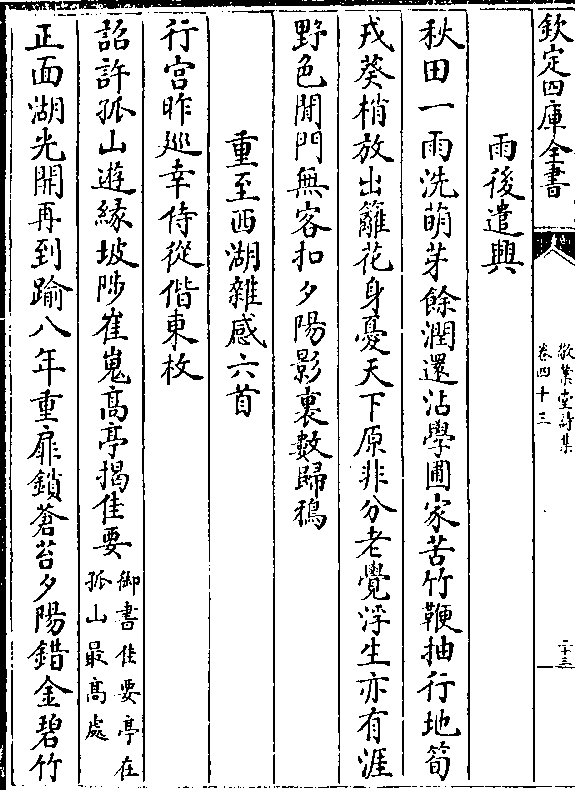 欽定四庫全書
敬業堂詩集
卷四十三
二十三
雨後遣興
秋田一雨洗萌芽餘潤還沾學圃家苦竹鞭抽行地筍
戎葵梢放出籬花身憂天下原非分老覺浮生亦有涯
野色閒門無客扣夕陽影裏數歸鴉
重至西湖雜感六首
行宮昨巡幸侍從偕東枚
詔許孤山遊緣坡陟崔嵬髙亭揭佳要御書佳要亭在孤山最髙處
正面湖光開再到踰八年重扉鎖蒼苔夕陽錯金碧竹